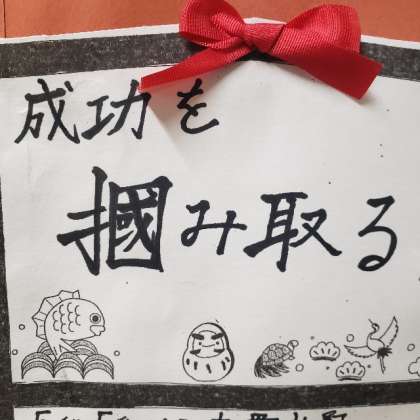 成功を
掴み取る